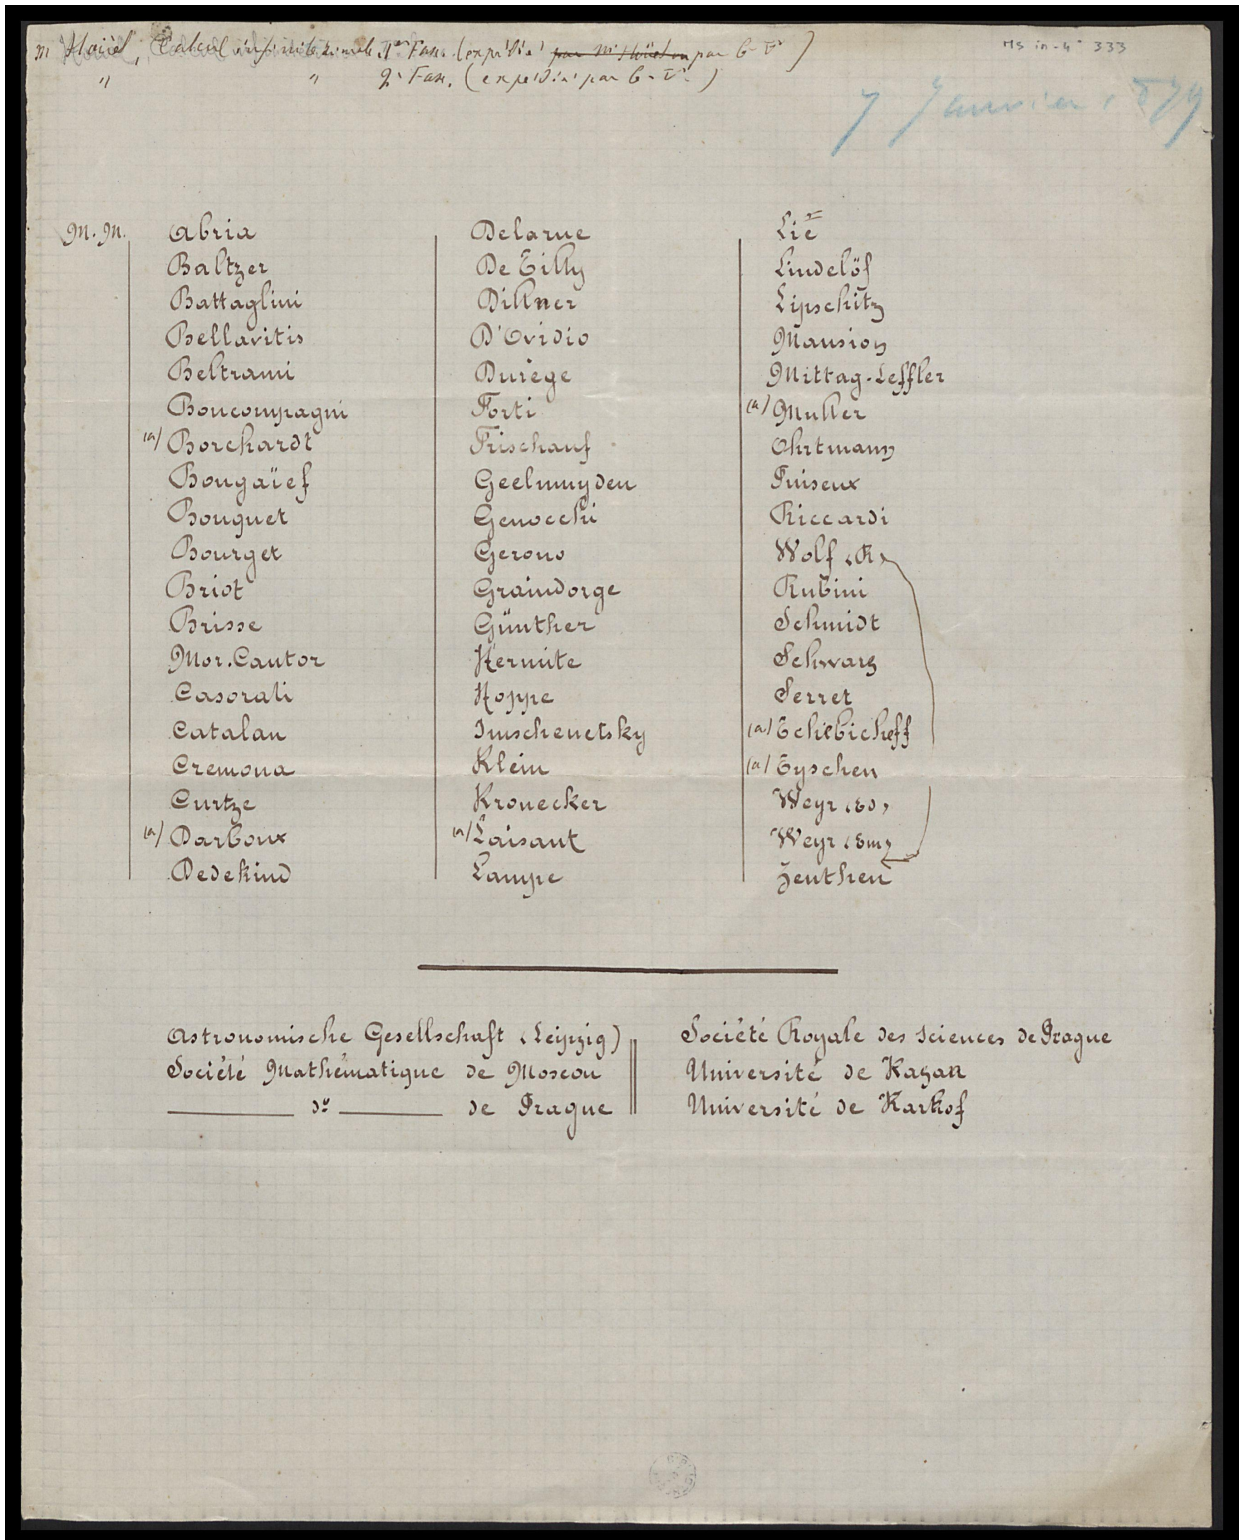 M Hoüel, Calcul infinitésimal. 1er Fasc. (expédié par Mr Hoüel par G-V.)
" " 2e Fasc. (expédié par G-V.)
Ms in-4° 333
7 Janvier 1879
M.M.
Abria
Baltzer
Battaglini
Bellavitis
Beltrami
Boncompagni
(a) Borchardt
Bougaïef
Bouquet
Bourget
Briot
Brisse
Mor. Cantor
Casorati
Catalan
Cremona
Curtze
(a) Darboux
Dedekind
Delarue
De Tilly
Dillner
D'Ovidio
Durège
Forti
Frischauf
Geelmuyden
Genocchi
Gerono
Graindorge
Günther
Hermite
Hoppe
Imschenetsky
Klein
Kronecker
(a) Laisant
Lampe
Lie
Lindelöf
Lipschitz
Mansion
Mittag-Leffler
(a) Muller
Ohrtmann
Puiseux
Riccardi
Wolf (R)
Rubini
Schmidt
Schwarz
Serret
(a) Tchebicheff
(a) Tyschen
Weyr (Ed)
Weyr (Em)
Zeuthen
Astronomische Gesellschaft (Leipzig)
Société Mathématique de Moscou
do de Prague
Société Royale des Sciences de Prague
Université de Kazan
Université de Karkof